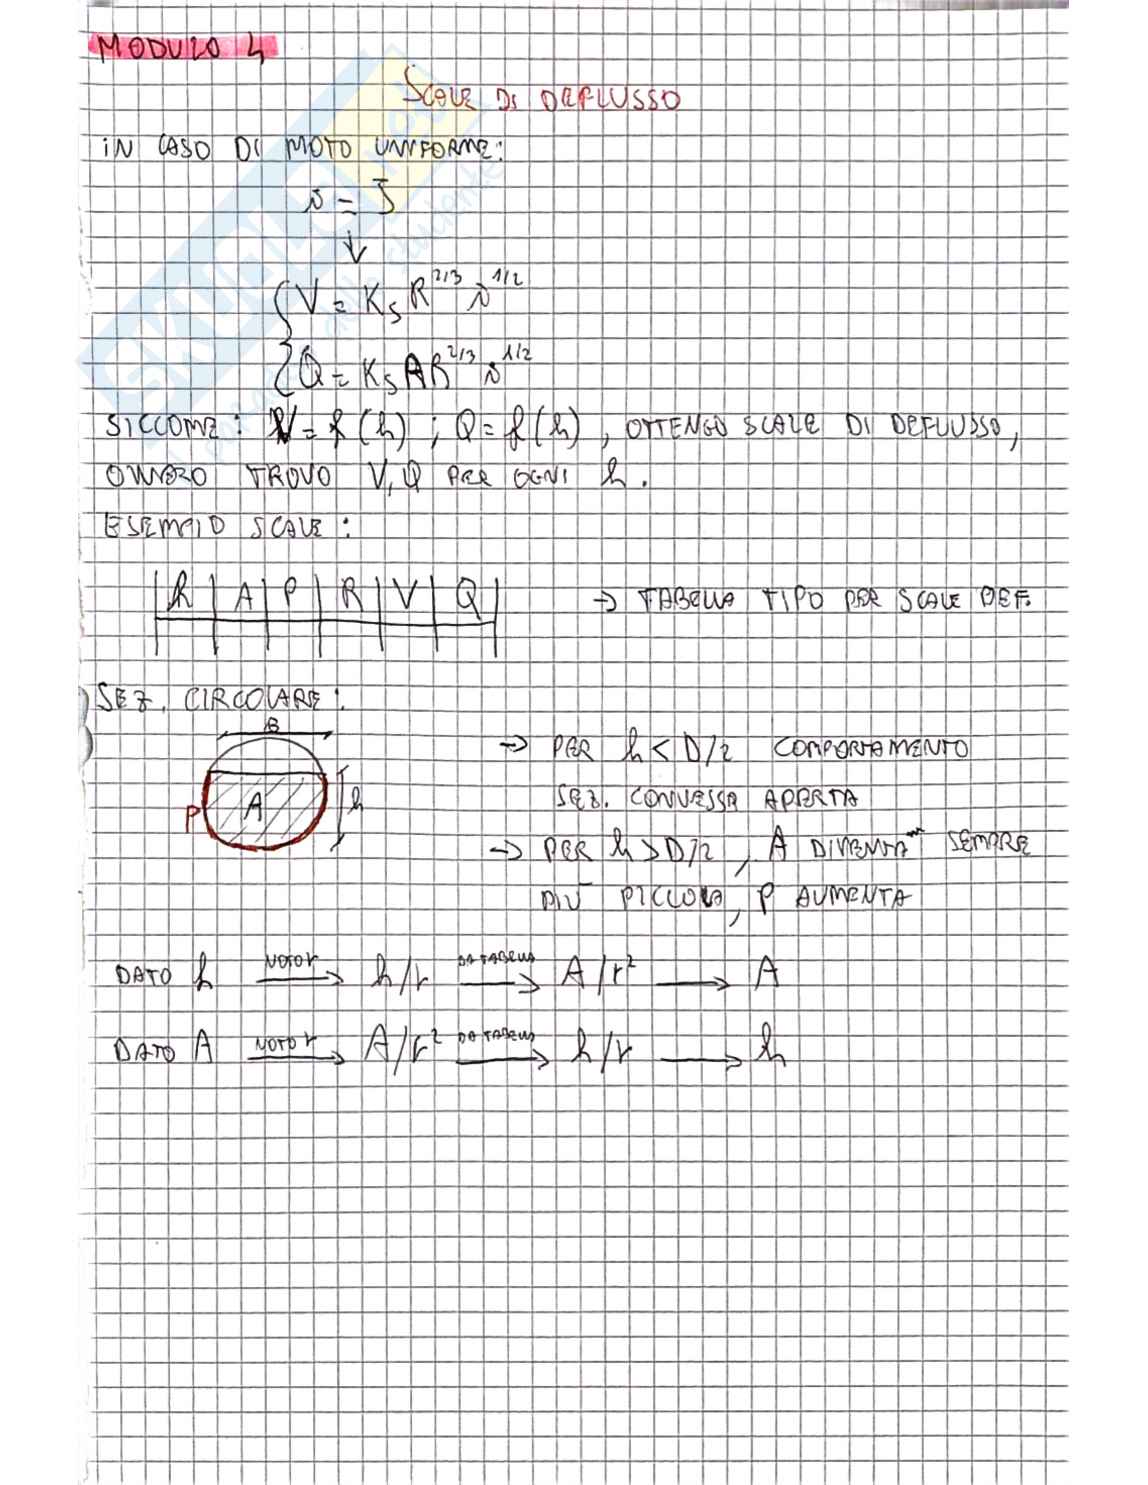 MODULO 4
SCALE DI DEFLUSSO
IN CASO DI MOTO UNIFORME:
i = J
↓
V = KS R^2/3 i^1/2
Q = KS A R^2/3 i^1/2
SICCOME: V = f(h) ; Q = f(h), OTTENGO SCALE DI DEFLUSSO,
OVVERO TROVO V, Q PER OGNI h.
ESEMPIO SCALE:
h | A | P | R | V | Q → TABELLA TIPO PER SCALE DEF.
SEZ. CIRCOLARE:
B
P A h
→ PER h < D/2 COMPORTAMENTO
SEZ. CONVESSA APERTA
→ PER h > D/2, A DIVENTA SEMPRE
PIÙ PICCOLA, P AUMENTA
DATO h NOTO r → h/r DA TABELLA → A/r² → A
DATO A NOTO r → A/r² DA TABELLA → h/r → h
SKUOLA.net